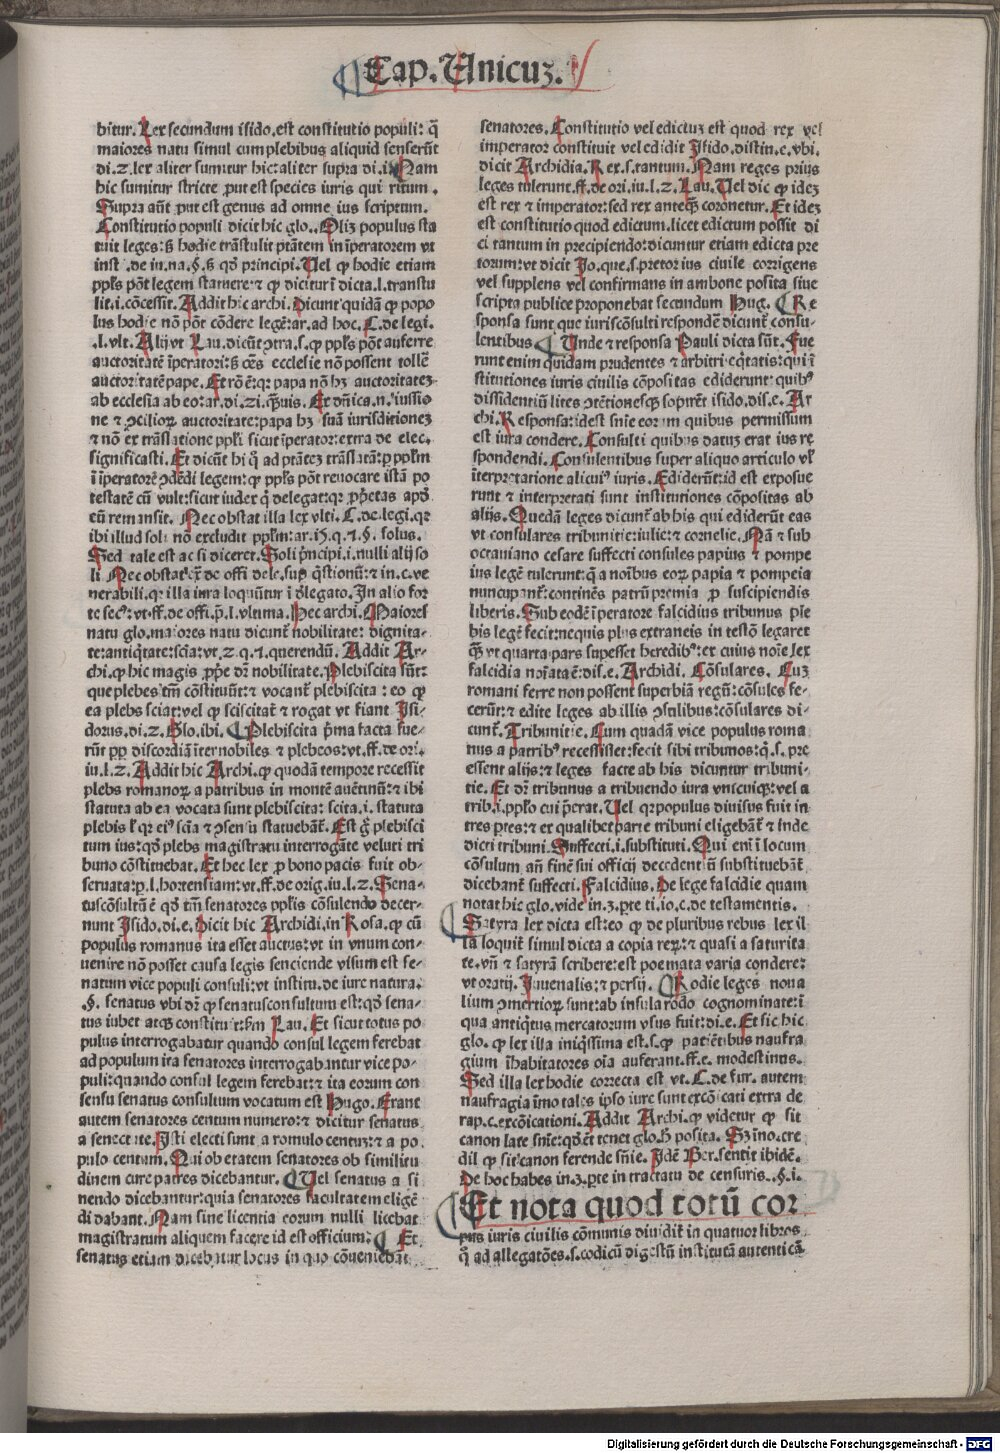 Cap. Unicuz.
bitur. Lex secundum isido. est constitutio populi: q̃
maiores natu simul cum plebibus aliquid senserũt
di. 2. lex aliter sumitur hic: aliter supra di. i. Nam
hic sumitur stricte put est species iuris qui ritum.
Supra aũt put est genus ad omne ius scriptum.
Constitutio populi dicit hic glo. Oliz populus sta
tuit leges: s hodie trãstulit ptãtem in iperatorem vt
inst. de iu. na. §. s qd principi. Uel q hodie etiam
ppls põt legem statuere: ⁊ q dicitur i dicta. l. transtu
lit. i. cõcessit. Addit hic archi. Dicunt quidã q popo
lus hodie nõ põt cõdere legẽ: ar. ad hoc. C. de legi.
.l. vlt. Alij vt Lau. dicũt ↄtra. s. q ppls põt auferre
auctoritatẽ iperatori: s oẽs ecclesie nõ possent tollẽ
auctoritatẽ pape. Et rõ ẽ: qr papa nõ hz auctoritatez
ab ecclesia ab eo: ar. di. zi. q̃uis. Ex dñica. n. iussio
ne ⁊ ↄcilioꝝ auctoritate: papa hz suã iurisditionez
⁊ nõ ex trãslatione ppli sicut iperator: extra de elec.
significasti. Et dicũt hi q̃ ad ptãtez trãslatã: p pplm
i iperatorẽ ↄdẽdi legem: q ppls põt reuocare istã po
testatẽ cũ vult: sicut iudex q̃ delegat: qr pẽtas apd
eũ remansit. Nec obstat illa lex vlti. C. de legi. qr
ibi illud soli nõ excludit pplm: ar. ii. q. 1. §. solus.
Sed tale est ac si diceret. Soli pncipi. i. nulli alij so
li Nec obstat ex̃ de offi dele. sup q̃stionũ: ⁊ in. c. ve
nerabili. qr illa iura loquũtur i delegato. In alio for
te secꝰ: vt. ff. de offi. p̃. l. vltima. Hec archi. Maiores
natu glo. maiores natu dicunt nobilitate: dignita-
te: antiqtate: scia: vt. 2. q. 1. querendũ. Addit Ar-
chi. q hic magis ppe dr nobilitate. Plebiscita sũt:
que plebes tm̃ cõstituũt: ⁊ vocant plebiscita: eo q
ea plebs sciat: vel q sciscitat ⁊ rogat vt fiant Isi-
dorus. di. 2. Glo. ibi. Plebiscita pma facta fue-
rũt pp discordiã iter nobiles ⁊ plebeos: vt. ff. de ori.
iu. l. 2. Addit hic Archi. q quodã tempore recessit
plebs romanoꝝ a patribus in montẽ auẽtinũ: ⁊ ibi
statuta ab ea vocata sunt plebiscita: scita. i. statuta
plebis l qr eiꝰ scia ⁊ ↄsensu statuebãt. Est g plebisci
tum ius: qd plebs magistratu interrogãte veluti tri
buno cõstituebat. Et hec lex p bono pacis fuit ob-
seruata: p. l. hortensiam: vt. ff. de orig. iu. l. 2. Sena-
tuscõsultũ ẽ qd tm̃ senatores pplis cõsulendo decer-
nunt Isido. di. e. Dicit hic Archidi. in Rosa. q cũ
populus romanus ita esset auctus: vt in vnum con-
uenire nõ posset causa legis sanciende visum est se-
natum vice populi consuli: vt institu. de iure natura.
.§. senatus vbi dr q senatusconsultum est: qd sena-
tus iubet atq constituit: fm Lau. Et sicut totus po
pulus interrogabatur quando consul legem ferebat
ad populum ita senatores interrogabantur vice po-
puli: quando consul legem ferebat: ⁊ ita eorum con
sensu senatus consultum vocatum est Hugo. Erant
autem senatores centum numero: ⁊ dicitur senatus
a senectute. Isti electi sunt a romulo centuz: ⁊ a po.
pulo centum. Qui ob etatem senatores ob similitu
dinem cure patres dicebantur. Uel senatus a si
nendo dicebantur: quia senatores facultatem eligẽ
di dabant. Nam sine licentia eorum nulli licebat
magistratum aliquem facere id est officium: Et
senatus etiam dicebatur locus in quo cõueniebãt
senatores. Constitutio vel edictuz est quod rex vel
imperator constituit vel edidit Isido. distin. e. vbi.
dicit Archidia. Rex. s. tantum. Nam reges prius
leges tulerunt. ff. de ori. iu. l. 2. Lau. Uel dic q idez
est rex ⁊ imperator: sed rex anteq̃ coronetur. Et idez
est constitutio quod edictum. licet edictum possit di
ci tantum in precipiendo: dicuntur etiam edicta pre
torum: vt dicit Jo. que. s. pretor ius ciuile corrigens
vel supplens vel confirmans in ambone posita siue
scripta publice proponebat secundum Hug. Re
sponsa sunt que iuriscõsulti respondẽ dicunt consu-
lentibus. Unde ⁊ responsa Pauli dicta sũt. Fue
runt enim quidam prudentes ⁊ arbitri eq̃tatis: qui i
stitutiones iuris ciuilis cõpositas ediderunt: quibꝰ
dissidentiũ lites ↄtẽtionesq̃ sopirẽt isido. dis. e. Ar
chi. Responsa: idest snie eorum quibus permissum
est iura condere. Consulti quibus datuz erat ius re
spondendi. Consulentibus super aliquo articulo vl
iterpretatione alicuiꝰ iuris. Ediderũt: id est exposue
runt ⁊ interpretati sunt institutiones cõpositas ab
alijs. Quedã leges dicunt ab his qui ediderũt eas
vt consulares tribunitie: iulie: ⁊ cornelie. Nã ⁊ sub
octauiano cesare suffecti consules papius ⁊ pompe
ius legẽ tulerunt: q̃ a noibus eoꝝ papia ⁊ pompeia
nuncupant: continẽs patrũ premia p suscipiendis
liberis. Sub eodẽ iperatore falcidius tribunus ple
bis legẽ fecit: nequis plus extraneis in testõ legaret
q̃ vt quarta pars supesset heredibꝰ: ex cuius noie lex
falcidia noiata ẽ: dis. e. Archidi. Cõsulares. Cuz
romani ferre non possent superbiã regũ: cõsules fe-
cerũt: ⁊ edite leges ab illis ↄsulibus: cõsulares di-
cunt. Tribunitie. Cum quadã vice populus roma
nus a patribꝰ recessisset: fecit sibi tribunos: q̃. s. pre
essent alijs: ⁊ leges facte ab his dicuntur tribuni-
tie. Et dr tribunus a tribuendo iura vnicuiqꝫ: vel a
trib. i. pplo cui perat. Uel qr populus diuisus fuit in
tres ptes: ⁊ ex qualibet parte tribuni eligebãt ⁊ inde
dicti tribuni. Suffecti. i. substituti. Qui eni i locum
cõsulum añ finẽ sui officij decedentiũ substituebãt
dicebant suffecti. Falcidius. De lege falcidie quam
notat hic glo. vide in. 3. pte ti. io. c. de testamentis.
Satyra lex dicta est: eo q de pluribus rebus lex il-
la loquit simul dicta a copia reꝝ: ⁊ quasi a saturita
te. vñ ⁊ satyrã scribere: est poemata varia condere:
vt oratij. Juuenalis: ⁊ persij. Rodie leges noua
lium ↄmertioꝝ sunt: ab insula rodo cognominate: i
qua antiqtus mercatorum vsus fuit: di. e. Et sic hic
glo. q lex illa iniqssima est. s. q patiẽtibus naufra
gium ihabitatores oia auferant. ff. e. modestinus.
Sed illa lex hodie correcta est vt. C. de fur. autem
naufragia imo tales ipso iure sunt excõicati extra de
rap. c. excõicationi. Addit Archi. q videtur q sit
canon late snie: qd et tenet glo. h posita. Sz ino. cre
dit q sit canon ferende snie. Idẽ Ber. sentit ibidẽ.
De hoc habes in. 3. pte in tractatu de censuris. §. i.
Et nota quod totũ cor
pus iuris ciuilis cõmunis diuidit in quatuor libros
q̃ ad allegatões. s. codicũ digestũ institutã autenticã
Digitalisierung gefördert durch die Deutsche Forschungsgemeinschaft - DFG